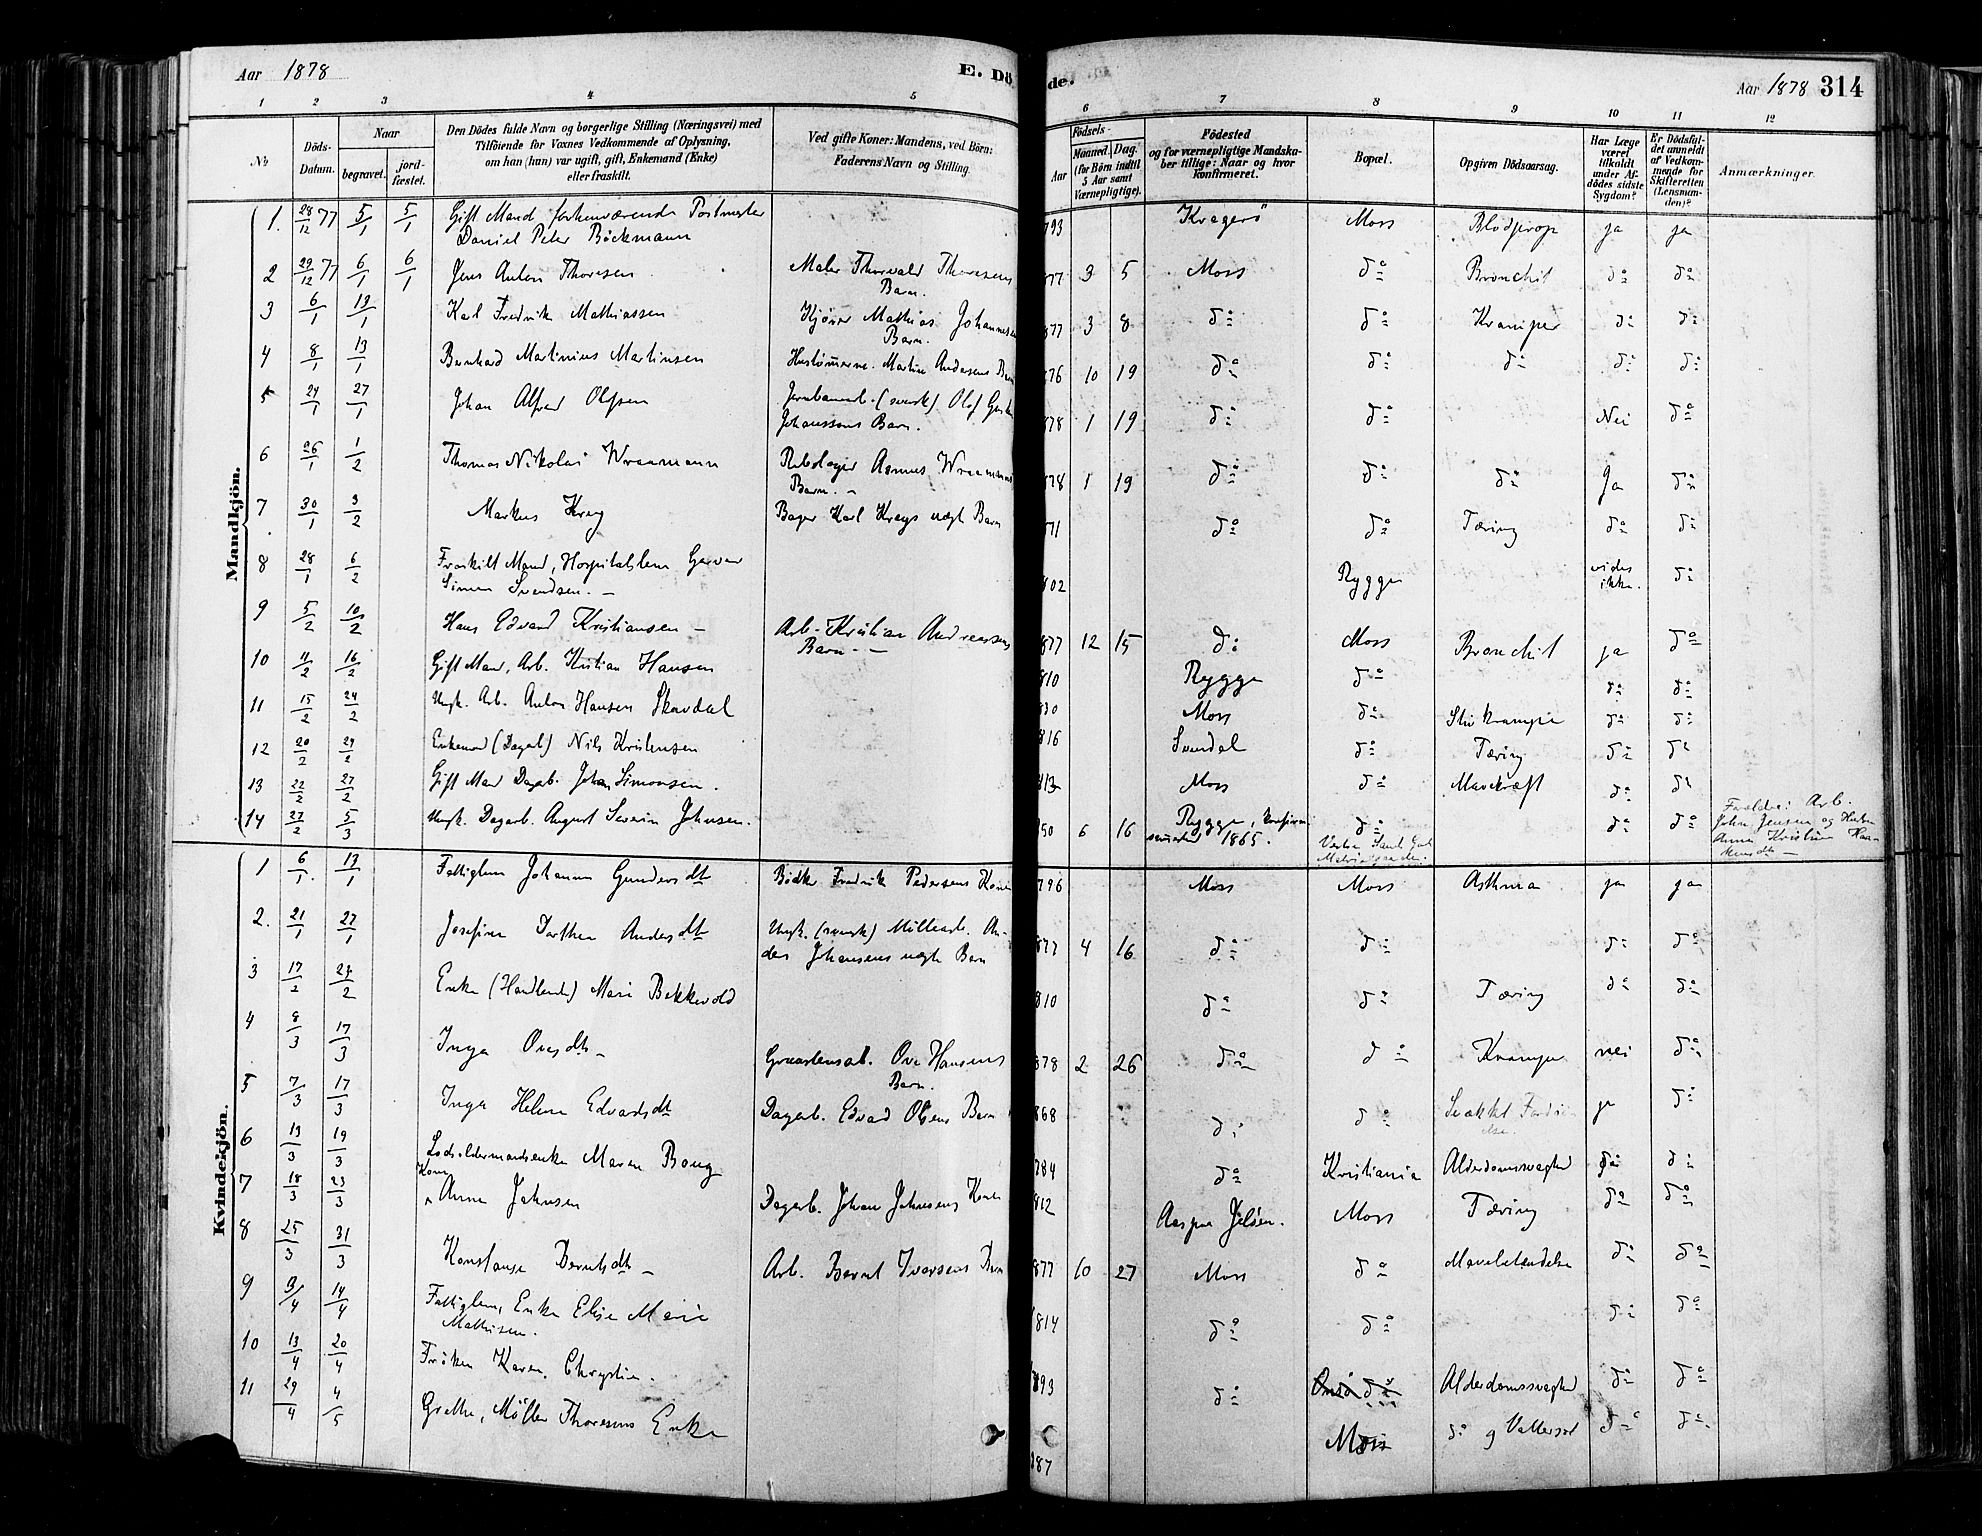 Aar 1878
E. Dö
de.
Aar 1878 314
1 2 3 4 5 6 7 8 9 10 11 12
No
Döds-Datum.
Naar
begravet.
jord-fæstet.
Den Dödes fulde Navn og borgerlige Stilling (Næringsvei) med
Tilföiende for Voxnes Vedkommende af Oplysning,
om han (hun) var ugift, gift, Enkemand (Enke)
eller fraskilt.
Ved gifte Koner: Mandens, ved Börn:
Faderens Navn og Stilling.
Födsels-
Aar
Maaned. Dag.
(for Börn indtil
5 Aar samt
Værnepligtige).
Födested
og for værnepligtige Mandska-
ber tillige: Naar og hvor
Konfirmeret.
Bopæl.
Opgiven Dödsaarsag.
Har Læge
været
tilkaldt
under Af-
dödes sidste
Sygdom?
Er Dödsfal-
det anmeldt
af Vedkom-
mende for
Skifteretten
(Lensman-
den)?
Anmærkninger.
Mandkjön.
1. 28/12 77 5/1 5/1 Gift Mand forhenværende Postmester 793 Kragerö Moss ja ja
Daniel Peter Böckmann
2 29/12 77 6/1 6/1 Jens Anton Thoresen Maler Thorvald Thoresens 877 3 5 Moss do Bronchit do do
Barn.
3 6/1 13/1 Karl Fredrik Mathiassen Mathias Johannesens 877 3 8 do do Kramper do do
Barn.
4 8/1 13/1 Bernhard Martinius Martinsen Martin Andersens Barn 876 10 19 do do do do do
5 24/1 27/1 Johan Alfred Olssen Jernbanearb. (svensk) Olof 878 1 19 do do Nei do
Johanssons Barn.
6 26/1 1/2 Thomas Nikolai Wraamann Rebslager Asmus Wraamanns 878 1 19 do do do Ja do
Barn. -
7 30/1 3/2 Markus Krag Bager Karl Krags uægt Barn 871 do do Tæring do do
8 28/1 6/2 Fraskilt Mand, Hospitalslem Garver 802 Rygge vides ikke. do
Simen Svendsen. -
9 5/2 10/2 Hans Edvard Kristiansen - Arb. Kristian Andreassens 877 12 15 do Moss Bronchit ja do
Barn - -
10 11/2 16/2 Gift Mand, Arb. Kristian Hansen 810 Rygge do do do
11 15/2 24/2 Ungk. Arb. Anton Hansen Skavdal 830 Moss do Stivkrampe do do
12 20/2 24/2 Enkemand (Dagarb) Nils Kristensen 816 Svindal do Tæring do do
13 22/2 27/2 Gift Mand Dagarb. Johan Simonsen. 813 Moss do Mavekræft do do
14 27/2 5/3 Ungk. Dagarb. August Severin Johnsen. 850 6 16 Rygge, konfir- do do do Forældre: Arb.
meret 1865. John Jensen og Hustru
Anne Kristine Haa-
Kvindekjön.
1 6/1 13/1 Fattiglem Johanne Gundersdtr Bödker Fredrik Pedersens Kone 796 Moss Moss Asthma ja ja
2. 21/1 27/1 Josefine Dorthea Andersdtr Ungk. (svensk) Möllearb. An- 877 4 16 do do do do
ders Johansens uægte Barn
3 17/2 27/2 Enke (Handlende) Mari Bekkevold 810 do do Tæring do do
4 8/3 17/3 Inga Ovesdtr - Ove Hansens 878 2 26 do do Krampe nei do
Barn.
5 7/3 17/3 Inga Helene Edvardsdtr Dagarb. Edvard Olsens Barn 868 do do ja do
6 13/3 19/3 Lodsoldermandsenke Maren Boug 784 do Kristiania Alderdomssvaghed do do
7 18/3 23/3 Kone Anne Johnsen Dagarb. Johan Johnsens Kone 812 Jelöen. Moss Tæring do do
8 25/3 31/3 Konstanse Berntsdtr - Arb. Bernt Iversens Barn 877 10 27 Moss do Mavebetændelse do do
9 9/4 14/4 Fattiglem, Enke Elise Marie 814 do do do do
Mathisen.
10 13/4 20/4 Fröken Karen Chrystie. 893 do do Alderdomssvaghed do do
11 29/4 4/5 Grethe, Möller Thoresens Enke 787 Moss do og Vattersot do do